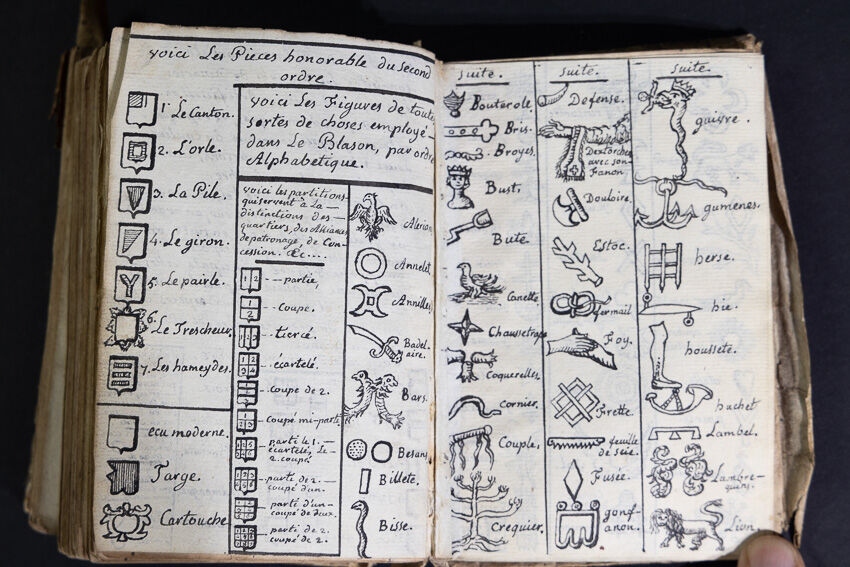 voici Les Pieces honorable du second
ordre.
1. Le Canton.
2. L'orle.
3. La Pile.
4. Le giron.
5. Le pairle.
6. Le Trescheur.
7. Les hameydes.
ecu moderne.
Targe.
Cartouche
voici Les Figures de toutes
sortes de choses employé
dans Le Blason, par ordre
Alphabetique.
voici les partitions
qui servent à La
distinctions des
quartiers, des Alliances
de patronage, de Con-
cession. &c....
partie,
coupe.
tiercé.
écartelé.
coupé de 2.
coupé mi-parti
parti le 1.
écartelé, Le
2. coupé.
parti de 2.
coupé d'un.
parti d'un
coupé de deux.
parti de 2.
coupé de 2.
Alerion
Annelet
Annilles
Badel
aire.
Bars.
Besan
Billete.
Bisse.
suite.
Bouterole
Bris.
Broyes.
Bust.
Bute.
Canette
Chaussetrape
Coquerelles.
Cornier.
Couple.
Crequier.
suite.
Defense.
Dextrochere
avec son
Fanon.
Douloire.
Estoc.
fermail
Foy.
Frette.
feuille
de scie.
Fusée.
gonf-
anon.
suite.
guivre.
gumenes.
herse.
hie.
houssete.
huchet
Lambel.
Lambre-
quins.
Lion.